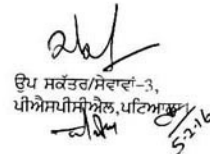 ਉਪ ਸਕੱਤਰ/ਸੇਵਾਵਾਂ-3,
ਪੀਐਸਪੀਸੀਐਲ,ਪਟਿਆਲਾ।
5.2.16